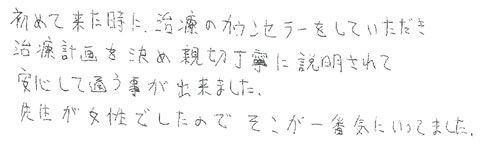 初めて来た時に、治療のカウンセラーをしていただき
治療計画を決め親切丁寧に説明されて
安心して通う事が出来ました。
先生が女性でしたので そこが一番気にいってました。